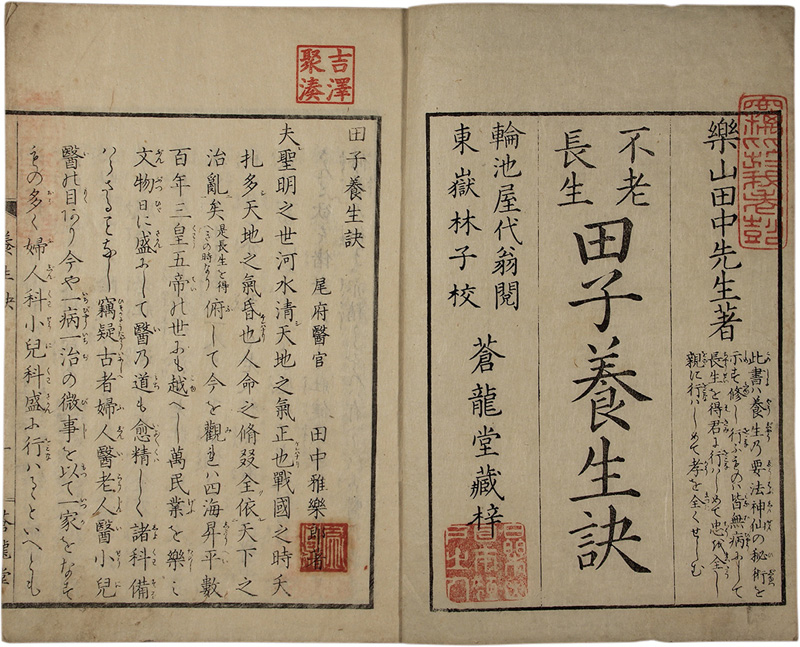 樂山田中先生著
此書ハ養生乃要法神仙の秘術を
示す修し行ふものハ皆無病にして
長生を得君に行ハしめて忠を全し
親に行ハしめて孝を全くせしむ
不老
長生
田子養生訣
輪池屋代翁閲
東嶽林子校
蒼龍堂藏梓
吉澤
聚湊
田子養生訣
尾府醫官 田中雅樂郎著
夫聖明之世河水清天地之氣正也戰國之時夭
扎多天地之氣昏也人命之脩殀全依天下之
治亂矣 是長生を得へきの時なり 俯して今を觀れハ四海昇平數
百年三皇五帝の世にも越へし萬民業を樂ミ
文物日に盛にして醫乃道も愈精しく諸科備
ハらさることなし竊疑古者婦人醫老人醫小兒
醫の目あり今や一病一治の微事を以て一家をなす
もの多く婦人科小兒科盛に行ハるといへとも
養生訣 一 蒼龍堂